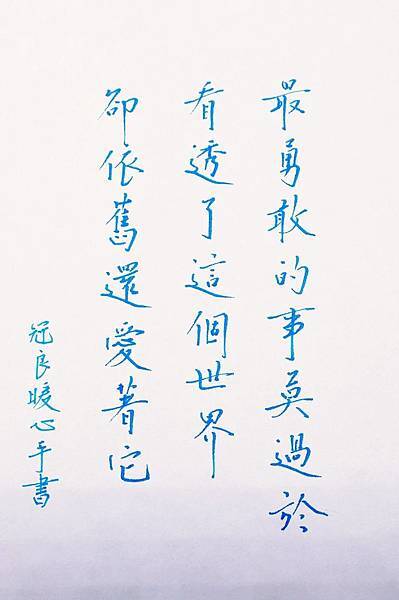 最勇敢的事莫過於
看透了這個世界
卻依舊還愛著它
冠良暖心手書